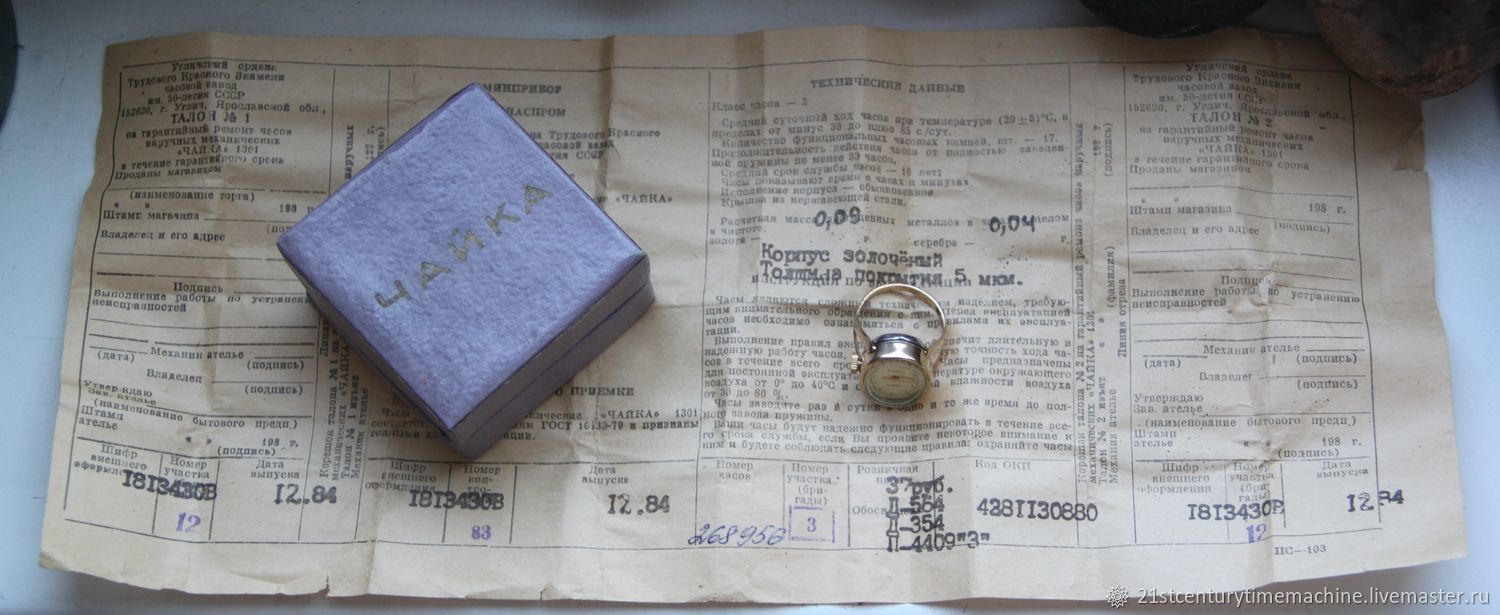 Угличский ордена
Трудового Красного Знамени
часовой завод
им. 50-летия СССР
152620, г. Углич, Ярославской обл.,
ТАЛОН № 1
на гарантийный ремонт часов
наручных механических
«ЧАЙКА» 1301
в течение гарантийного срока
Проданы магазином
(наименование торга)
« » 198 г.
Штамп магазина
Владелец и его адрес
Подпись
Выполнение работы по устранению
неисправностей
Механик ателье
(дата) (подпись)
Владелец
(подпись)
Утверждаю
Зав. ателье
(наименование бытового предп.)
Штамп
ателье
« » 198 г.
(подпись)
Шифр внешнего оформления
Номер участка
Дата выпуска
181З430В
12.84
12
Корешок талона № 1 на гарантийный
механических «ЧАЙКА» 1301
Талон № 1 изъят
Механик ателье
ЧАЙКА
МИНПРИБОР
ПАСПОРТ
Трудового Красного
часовой завод
СССР
«ЧАЙКА»
ПРИЕМКЕ
Часы
«ЧАЙКА» 1301
ГОСТ 10733-79 и признаны
годными
Шифр внешнего оформления
Номер
Дата выпуска
181З430В
12.84
83
ТЕХНИЧЕСКИЕ ДАННЫЕ
Класс часов — 2
Средний суточный ход часов при температуре (20±5)°С, в
пределах от минус 30 до плюс 55 с/сут.
Количество функциональных часовых камней, шт. — 17.
Продолжительность действия часов от полностью заведен-
ной пружины не менее 35 часов.
Средний срок службы часов — 10 лет;
Часы показывают время в часах и минутах
Исполнение корпуса — обыкновенное
Крышка из нержавеющей стали.
Расчетная масса драгоценных металлов в часах в целом
в чистоте:
золота — 0,09 г. серебра — 0,04 г.
Корпус золочёный
Толщина покрытия 5 мкм.
ИНСТРУКЦИЯ ПО ЭКСПЛУАТАЦИИ
Часы являются сложным техническим изделием, требую-
щим внимательного обращения с ним. Перед эксплуатацией
часов необходимо ознакомиться с правилами их эксплуа-
тации.
Выполнение правил обеспечит длительную и
надежную работу часов, точность хода ча-
сов в течение всего Часы предназначены
для постоянной температуре окружающего
воздуха от 0° до 40°С и влажности воздуха
от 30 до 80 %.
Часы заводите раз в сутки в одно и то же время до пол-
ного завода пружины.
Ваши часы будут надежно функционировать в течение все-
го срока службы, если Вы проявите некоторое внимание к
ним и будете соблюдать следующие правила: охраняйте часы
Номер часов
Номер участка (бри- гады)
Розничная
Код ОКП
268956
3
37руб.
Д-564
Д-354
П-4409"З"
428II30880
Корешок талона № 2 на гарантийный ремонт часов наручных
механических «ЧАЙКА» 1301
Талон № 2 изъят « »
Механик ателье (фамилия) (подпись)
Линия отреза
Угличский ордена
Трудового Красного Знамени
часовой завод
им. 50-летия СССР
152620, г. Углич, Ярославской обл.,
ТАЛОН № 2
на гарантийный ремонт часов
наручных механических
«ЧАЙКА» 1301
в течение гарантийного срока
Проданы магазином
(наименование торга)
« » 198 г.
Штамп магазина
(подпись)
Владелец и его адрес
Подпись
Выполнение работы по устранению
неисправностей
Механик ателье
(дата) (подпись)
Владелец
(подпись)
Утверждаю
Зав. ателье
(наименование бытового предп.)
Штамп
ателье
« » 198 г.
(подпись)
Шифр внешнего оформления
Номер участка (бри- гады)
Дата выпуска
181З430В
12.84
12
ПС—103
21stcenturytimemachine.livemaster.ru